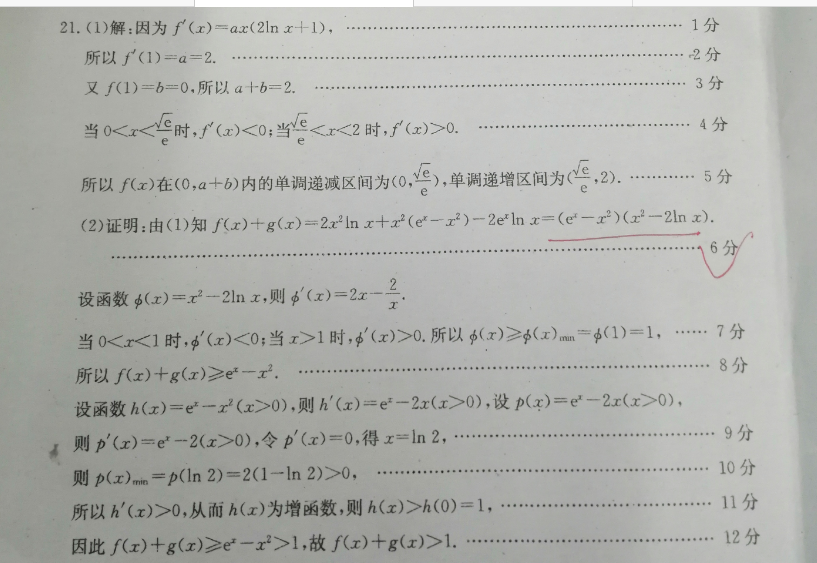 21. (1)解:因为 f′(x)=ax(2ln x+1), …… 1分
所以 f′(1)=a=2. …… 2分
又 f(1)=b=0,所以 a+b=2. …… 3分
当 0<x<√e/e 时,f′(x)<0;当 √e/e<x<2 时,f′(x)>0. …… 4分
所以 f(x)在(0,a+b)内的单调递减区间为(0,√e/e),单调递增区间为(√e/e,2). …… 5分
(2)证明:由(1)知 f(x)+g(x)=2x²ln x+x²(eˣ−x²)−2eˣln x=(eˣ−x²)(x²−2ln x).
…… 6分
设函数 ϕ(x)=x²−2ln x,则 ϕ′(x)=2x−2/x.
当 0<x<1 时,ϕ′(x)<0;当 x>1 时,ϕ′(x)>0. 所以 ϕ(x)≥ϕ(x)min=ϕ(1)=1, …… 7分
所以 f(x)+g(x)≥eˣ−x². …… 8分
设函数 h(x)=eˣ−x²(x>0),则 h′(x)=eˣ−2x(x>0),设 p(x)=eˣ−2x(x>0),
则 p′(x)=eˣ−2(x>0),令 p′(x)=0,得 x=ln 2, …… 9分
则 p(x)min=p(ln 2)=2(1−ln 2)>0, …… 10分
所以 h′(x)>0,从而 h(x)为增函数,则 h(x)>h(0)=1, …… 11分
因此 f(x)+g(x)≥eˣ−x²>1,故 f(x)+g(x)>1. …… 12分